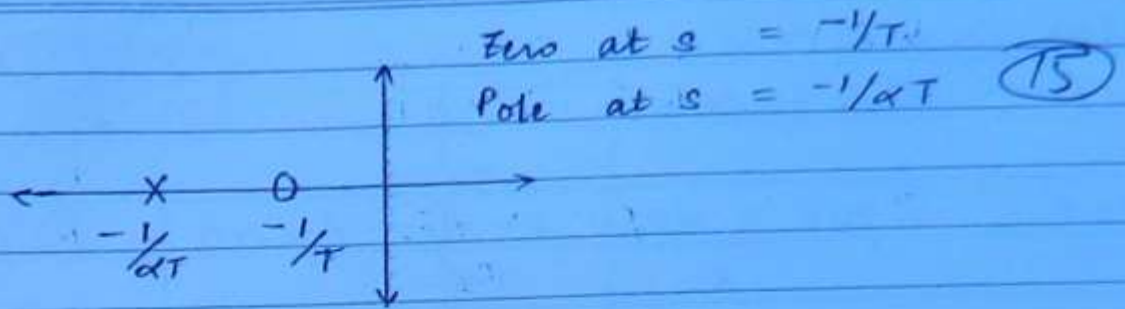 Zero at s = -1/T.
Pole at s = -1/αT
15
X O
-1/αT -1/T